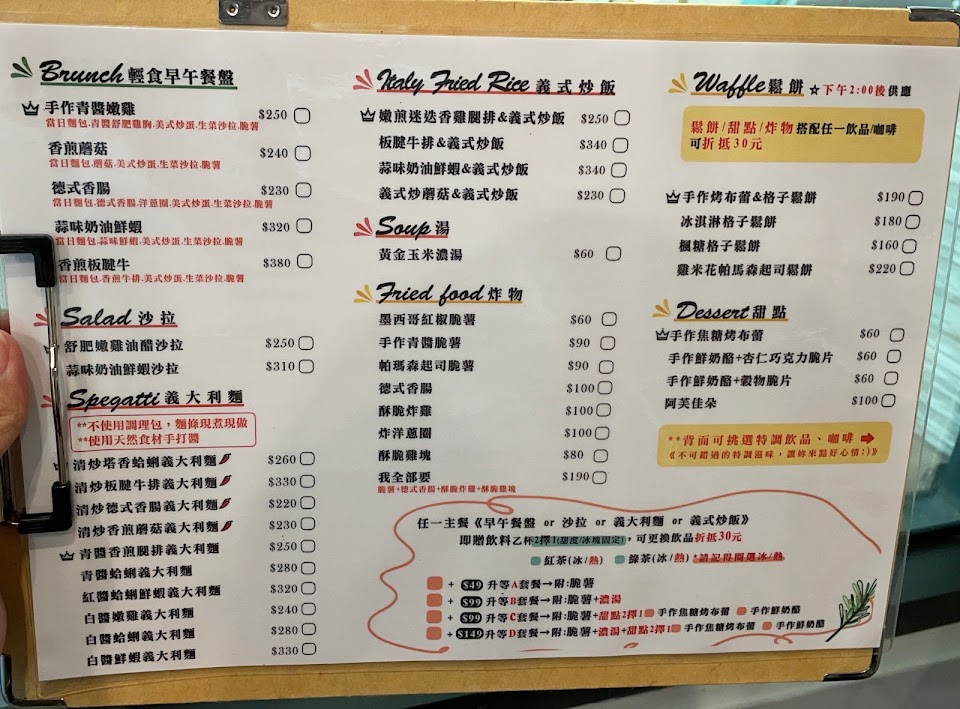 Brunch 輕食早午餐盤
手作青醬嫩雞 $250
當日麵包.青醬舒肥雞胸.美式炒蛋.生菜沙拉.脆薯
香煎蘑菇 $240
當日麵包.蘑菇.美式炒蛋.生菜沙拉.脆薯
德式香腸 $230
當日麵包.德式香腸.洋蔥圈.美式炒蛋.生菜沙拉.脆薯
蒜味奶油鮮蝦 $320
當日麵包.蒜味鮮蝦.美式炒蛋.生菜沙拉.脆薯
香煎板腱牛 $380
當日麵包.香煎牛排.美式炒蛋.生菜沙拉.脆薯
Salad 沙拉
舒肥嫩雞油醋沙拉 $250
蒜味奶油鮮蝦沙拉 $310
Spegatti 義大利麵
**不使用調理包，麵條現煮現做
**使用天然食材手打醬
清炒塔香蛤蜊義大利麵 $260
清炒板腱牛排義大利麵 $330
清炒德式香腸義大利麵 $220
清炒香煎蘑菇義大利麵 $230
青醬香煎腿排義大利麵 $250
青醬蛤蜊義大利麵 $280
紅醬蛤蜊鮮蝦義大利麵 $320
白醬嫩雞義大利麵 $240
白醬蛤蜊義大利麵 $280
白醬鮮蝦義大利麵 $330
Italy Fried Rice 義式炒飯
嫩煎迷迭香雞腿排&義式炒飯 $250
板腱牛排&義式炒飯 $340
蒜味奶油鮮蝦&義式炒飯 $340
義式炒蘑菇&義式炒飯 $230
Soup 湯
黃金玉米濃湯 $60
Fried food 炸物
墨西哥紅椒脆薯 $60
手作青醬脆薯 $90
帕瑪森起司脆薯 $90
德式香腸 $100
酥脆炸雞 $100
炸洋蔥圈 $100
酥脆雞塊 $80
我全部要 $190
脆薯+德式香腸+酥脆炸雞+酥脆雞塊
Waffle 鬆餅 ☆下午2:00後供應
鬆餅/甜點/炸物 搭配任一飲品/咖啡
可折抵30元
手作烤布蕾&格子鬆餅 $190
冰淇淋格子鬆餅 $180
楓糖格子鬆餅 $160
雞米花帕馬森起司鬆餅 $220
Dessert 甜點
手作焦糖烤布蕾 $60
手作鮮奶酪+杏仁巧克力脆片 $60
手作鮮奶酪+穀物脆片 $60
阿芙佳朵 $100
**背面可挑選特調飲品、咖啡
《不可錯過的特調滋味，讓妳來點好心情:)》
任一主餐《早午餐盤 or 沙拉 or 義大利麵 or 義式炒飯》
即贈飲料乙杯2擇1(甜度/冰塊固定)，可更換飲品折抵30元
紅茶(冰/熱) 綠茶(冰/熱) *請記得圈選冰/熱
+ $49 升等A套餐→附:脆薯
+ $99 升等B套餐→附:脆薯+濃湯
+ $99 升等C套餐→附:脆薯+甜點2擇1 手作焦糖烤布蕾 手作鮮奶酪
+ $149 升等D套餐→附:脆薯+濃湯+甜點2擇1 手作焦糖烤布蕾 手作鮮奶酪